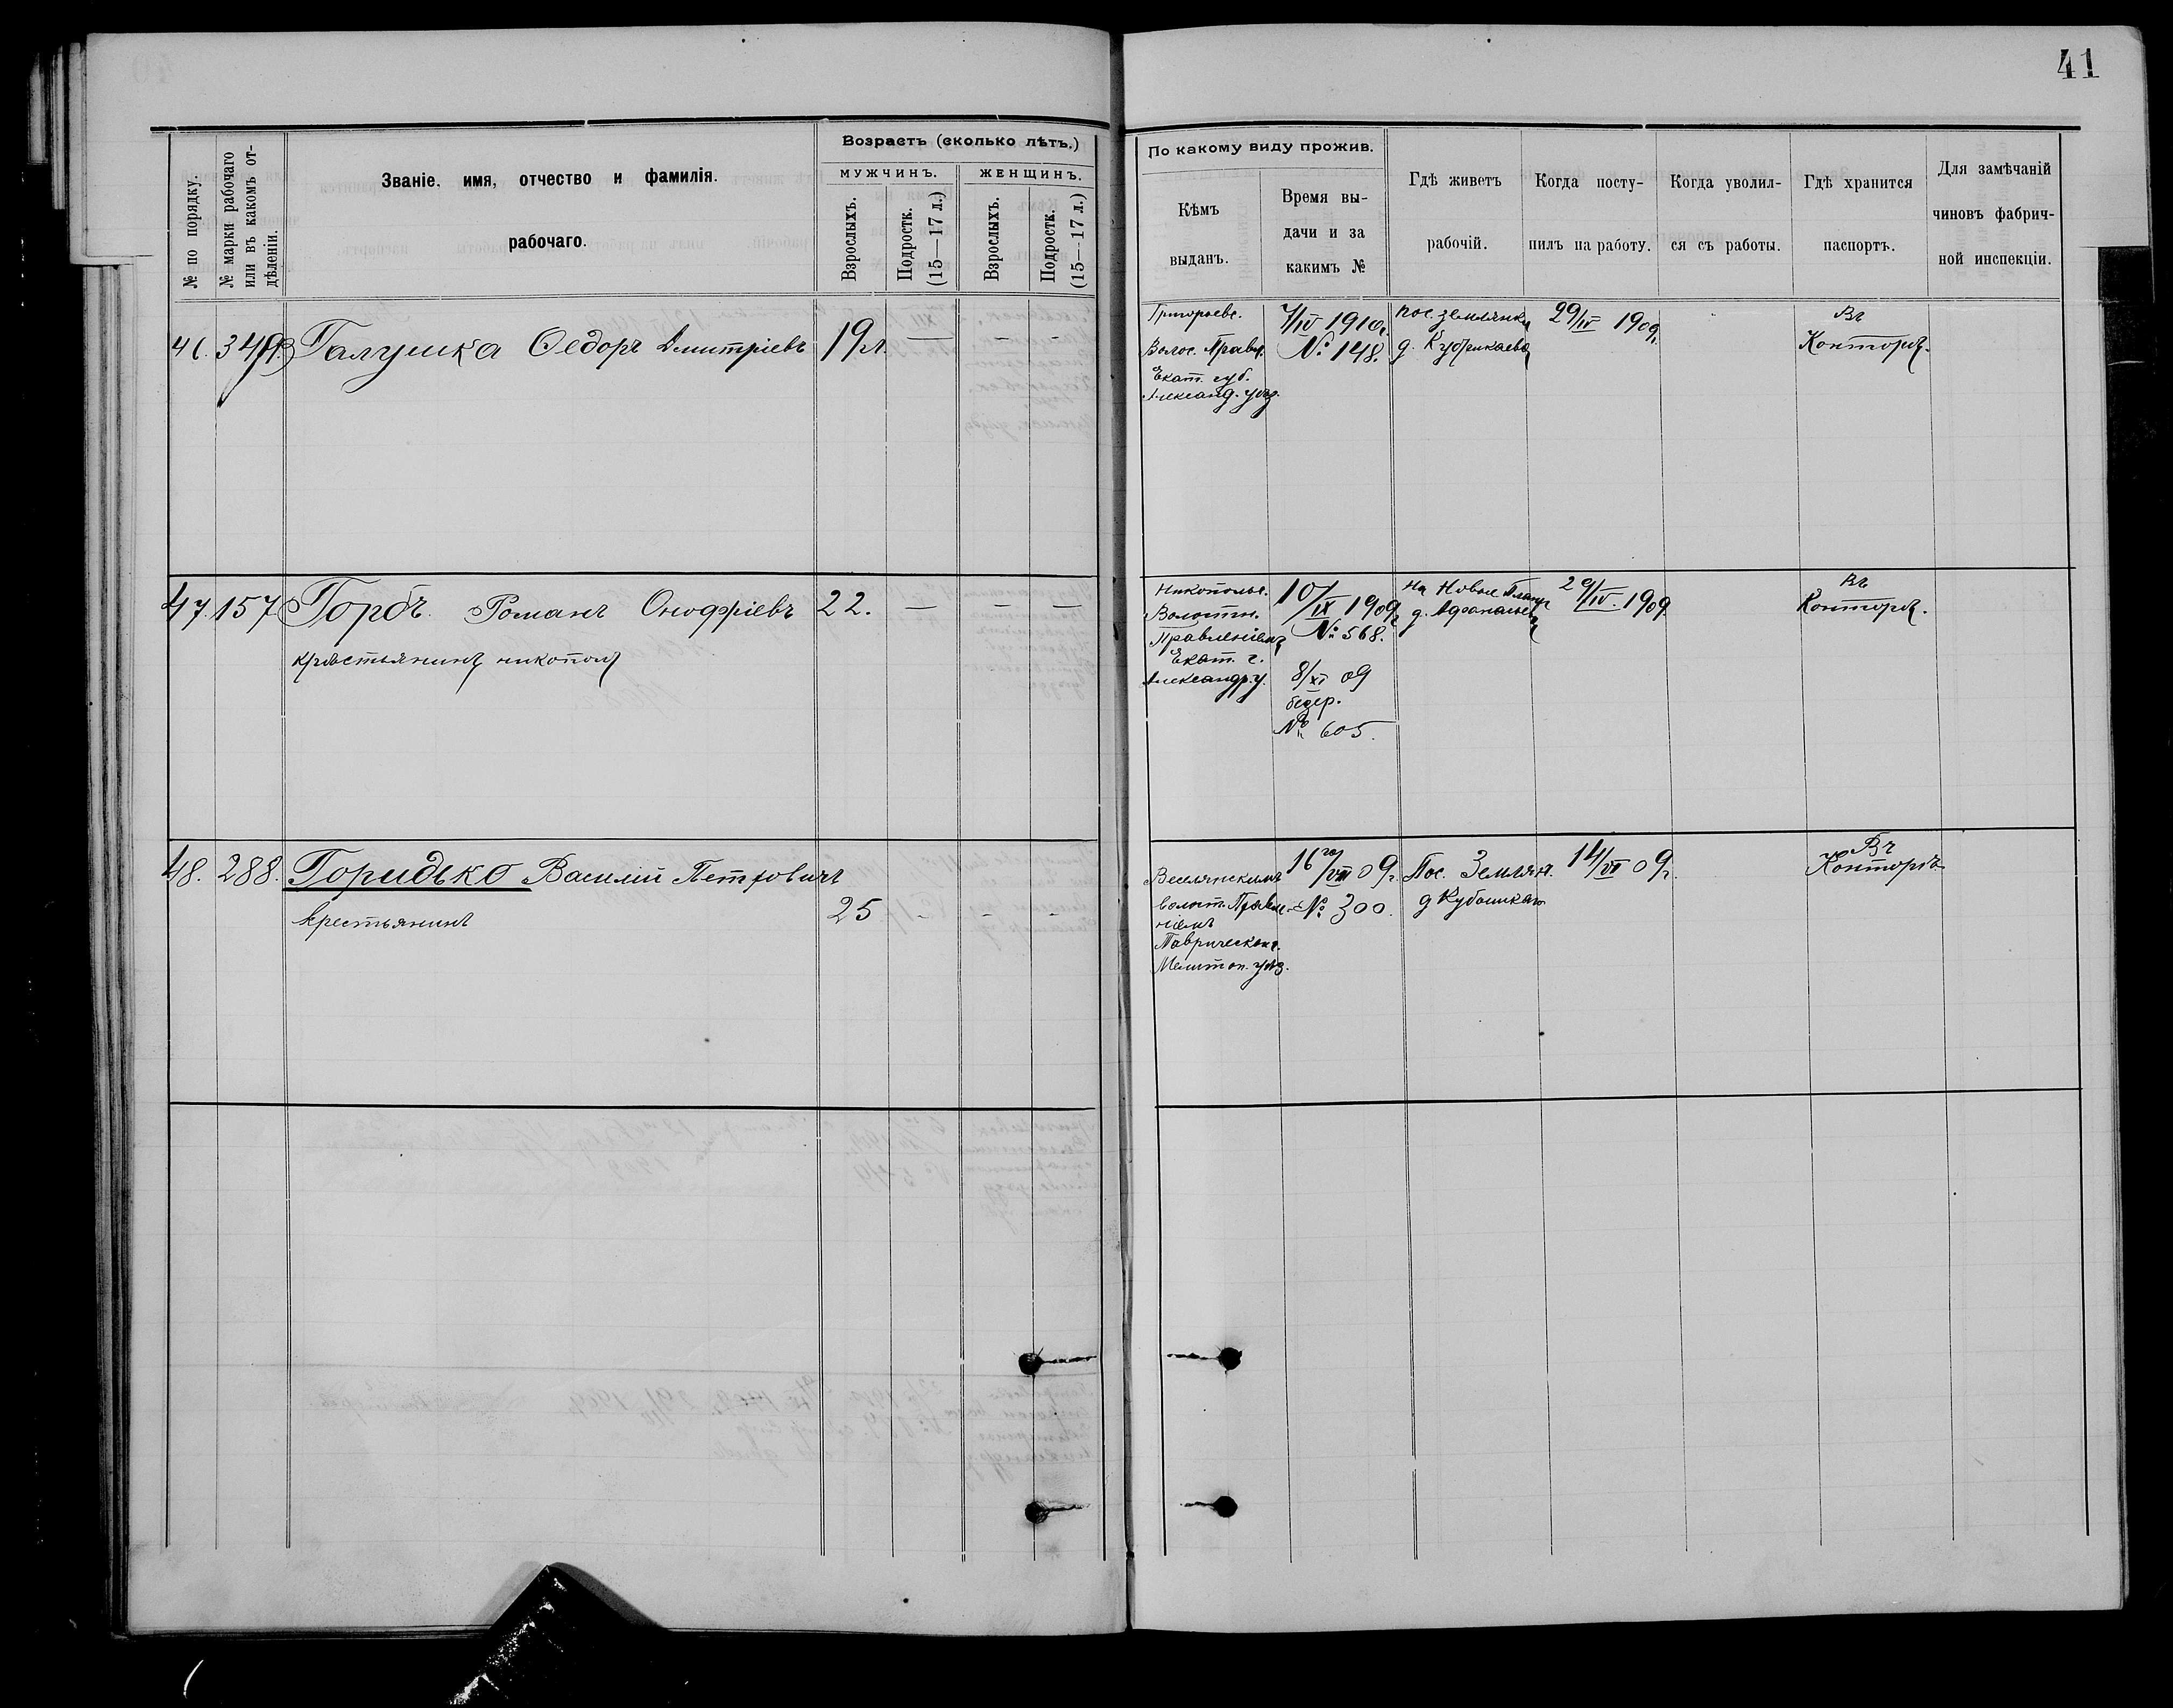 41
№ по порядку.
№ марки рабочаго
или въ какомъ от-
дѣленіи.
Званіе, имя, отчество и фамилія.
рабочаго.
Возрастъ (сколько лѣтъ.)
МУЖЧИНЪ.
ЖЕНЩИНЪ.
Взрослыхъ.
Подростк.
(15—17 л.)
Взрослыхъ.
Подростк.
(15—17 л.)
По какому виду прожив.
Кѣмъ
выданъ.
Время вы-
дачи и за
какимъ №
Гдѣ живетъ
рабочій.
Когда посту-
пилъ на работу.
Когда уволил-
ся съ работы.
Гдѣ хранится
паспортъ.
Для замѣчаній
чиновъ фабрич-
ной инспекціи.
46. Галушка Ѳедоръ Дмитріевъ 19 л. — — —
Григорьевс.
Волос. Правл.
Екат. губ.
Александ. уѣзд.
7/IV 1910 г.
№ 148.
пос. землянки
д.
29/IV 1909 г.
Въ
Конторѣ.
47. 157 Горбъ. Романъ Онофріевъ 22. — — —
крестьянинъ
Никополье.
Волостн.
Правленіемъ
Екат. г.
Александр. у.
10/IX 1909 г.
№ 568.
8/XI 09
№ 605.
на Новые Планы
д.
29/IV. 1909
Въ
Конторѣ.
48. 288. Горидько Василій Петровичъ
крестьянинъ 25 - - -
Веселянскимъ
волост. Правле-
ніемъ
Таврической г.
Мелитоп. уѣзд.
16го/VIII 09 г.
№ 300.
Пос. Землян.
д
14/VI 09 г.
Въ
Конторѣ